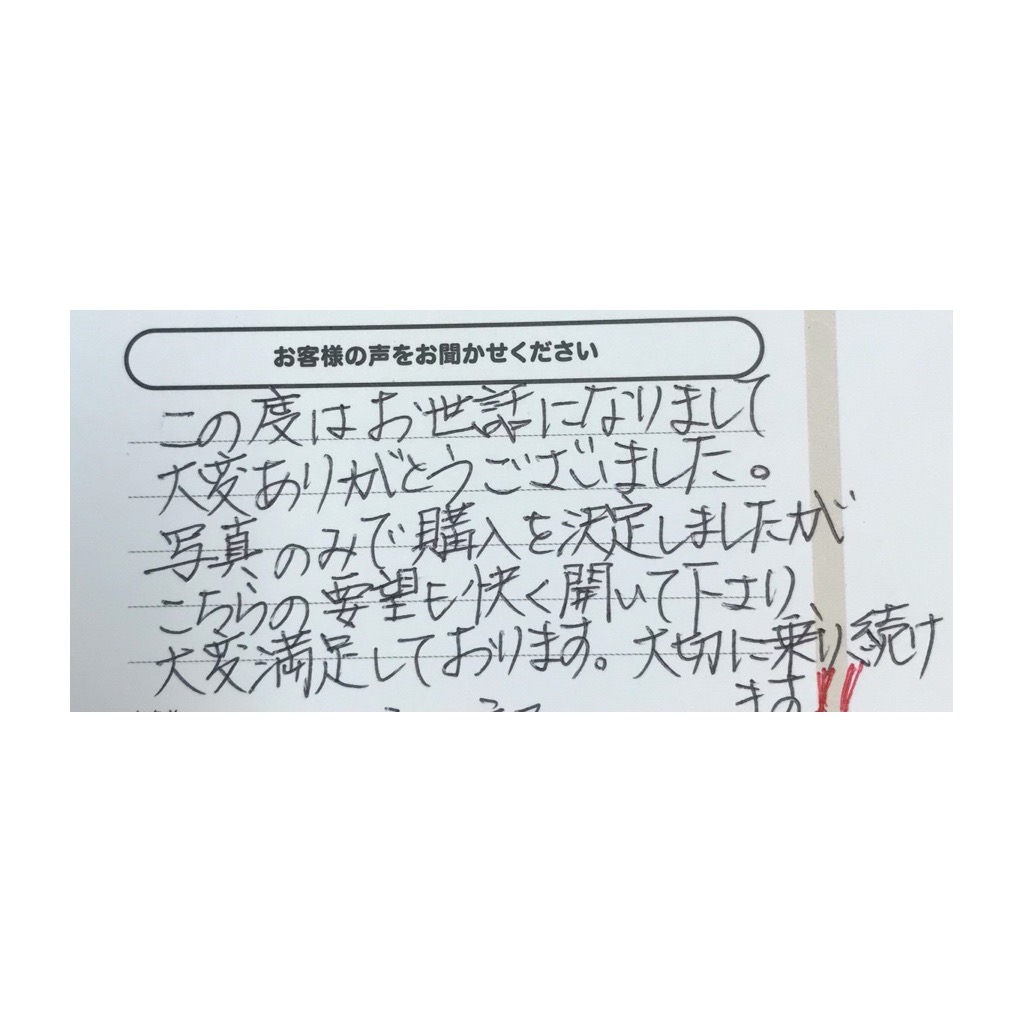 お客様の声をお聞かせください
この度はお世話になりまして
大変ありがとうございました。
写真のみで購入を決定しましたが
こちらの要望も快く開いて下さり
大変満足しております。大切に乗り続け
ます!!